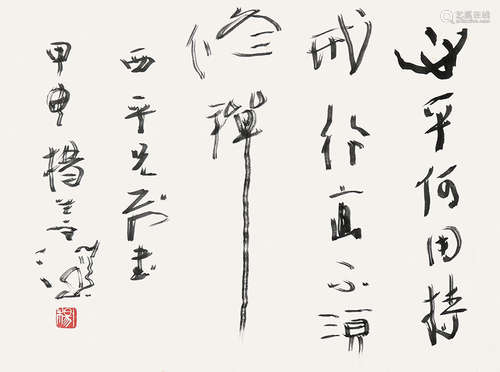 心平何用持
戒行直不须
修禅
西平先生书
甲申杨善深
杨